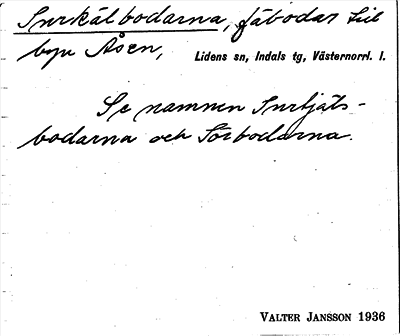 Snrkälbodarna, fäbodar till
byn Åsen, Lidens sn, Indals tg, Västernorrl. l.
Se namnen Snrtjäts-
bodarna och Sörbodarna.
VALTER JANSSON 1936